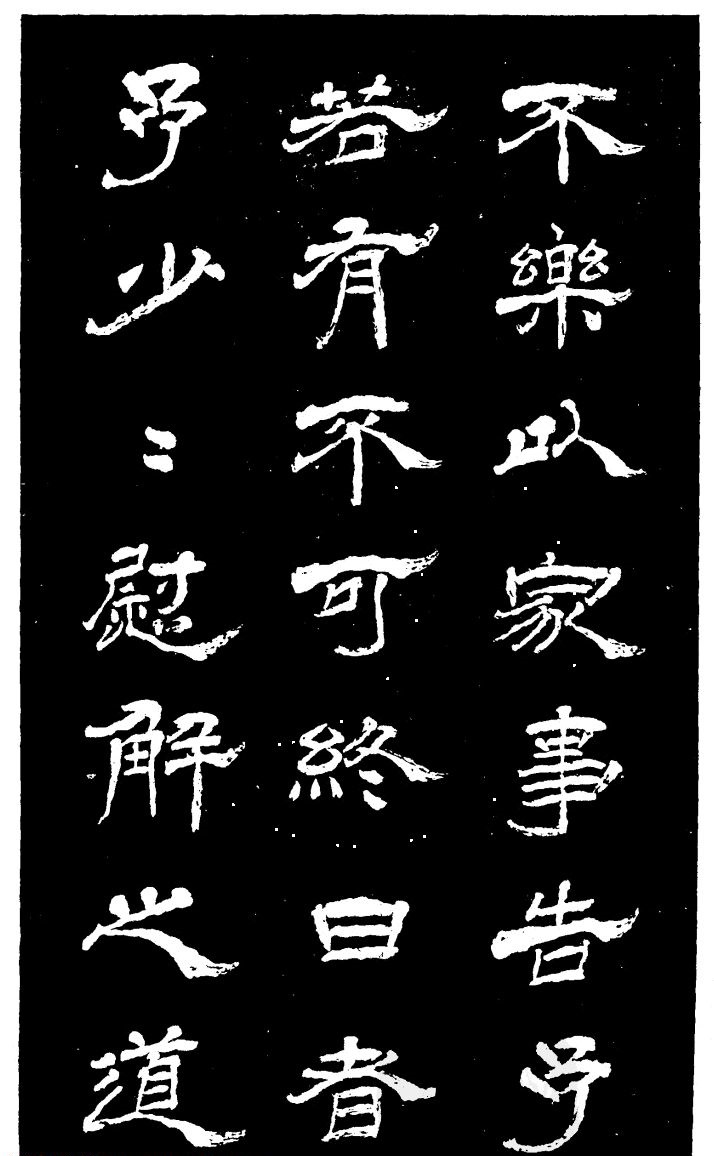 不樂以家事告予
若有不可終日者
予少〻慰解之道